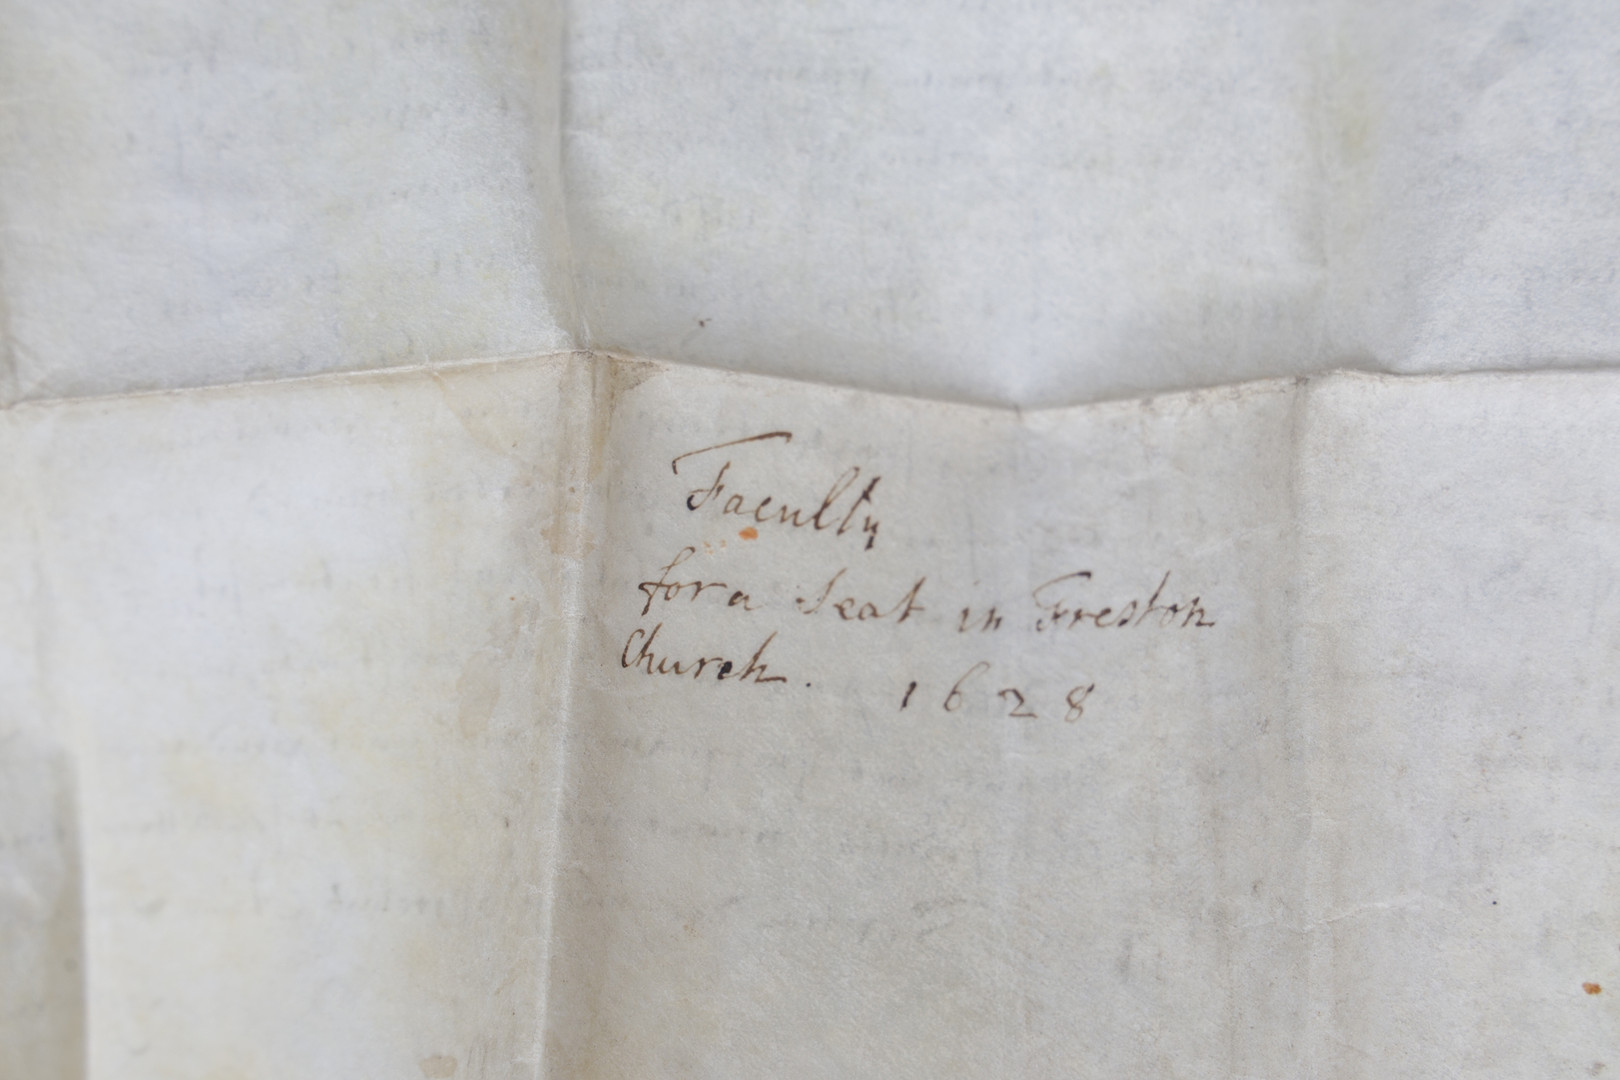 Faculty
for a Seat in Freston
Church. 1628